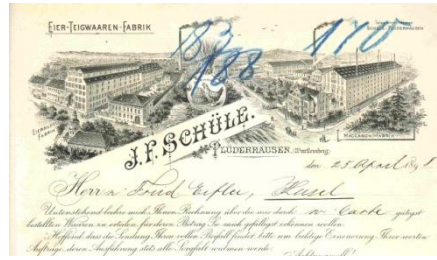 EIER-TEIGWAAREN-FABRIK
83
188
170
EIERTEIGW.
FABRIK
MACCARONI-FABRIK
J. F. SCHÜLE.
PLÜDERHAUSEN, (Württemberg)
den 25 April 189
Herrn Hasel
Untenstehend beehre mich, Ihnen Rechnung über die mir durch gütigst
bestellten Waaren zu erteilen, für deren Betrag Sie mich gefälligst erkennen wollen.
Hoffend dass die Sendung Ihren vollen Beifall findet, bitte um baldige Erneuerung Ihrer werten
Aufträge, deren Ausführung stets alle Sorgfalt widmen werde.
Achtungsvoll